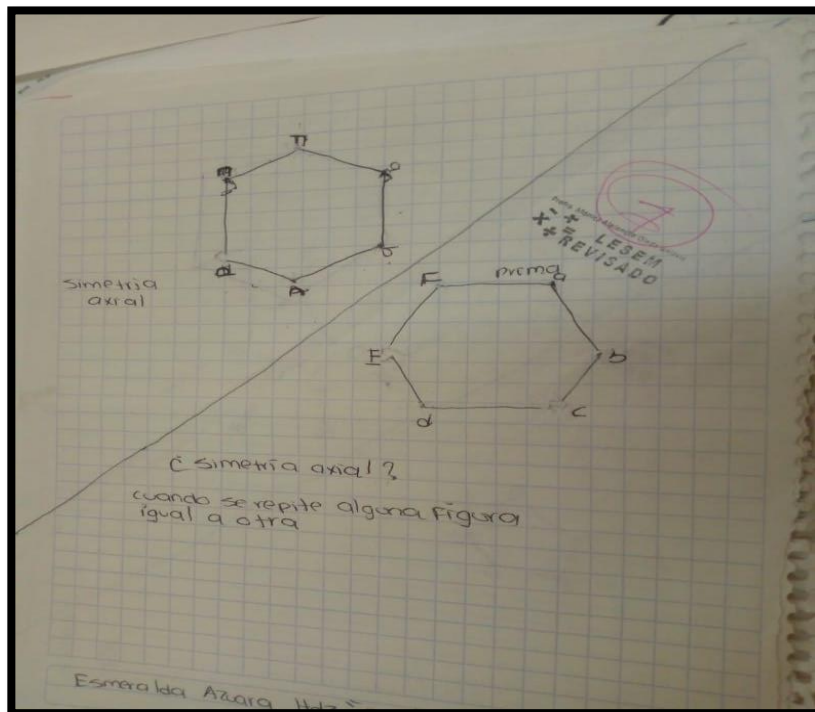 F
E
a
b
d
A
simetria
axial
7
x - +
+ = LESEM
REVISADO
F
prima
a
E
b
d
c
¿simetría axial?
cuando se repite alguna Figura
igual a otra
Esmeralda Azuara Hdz